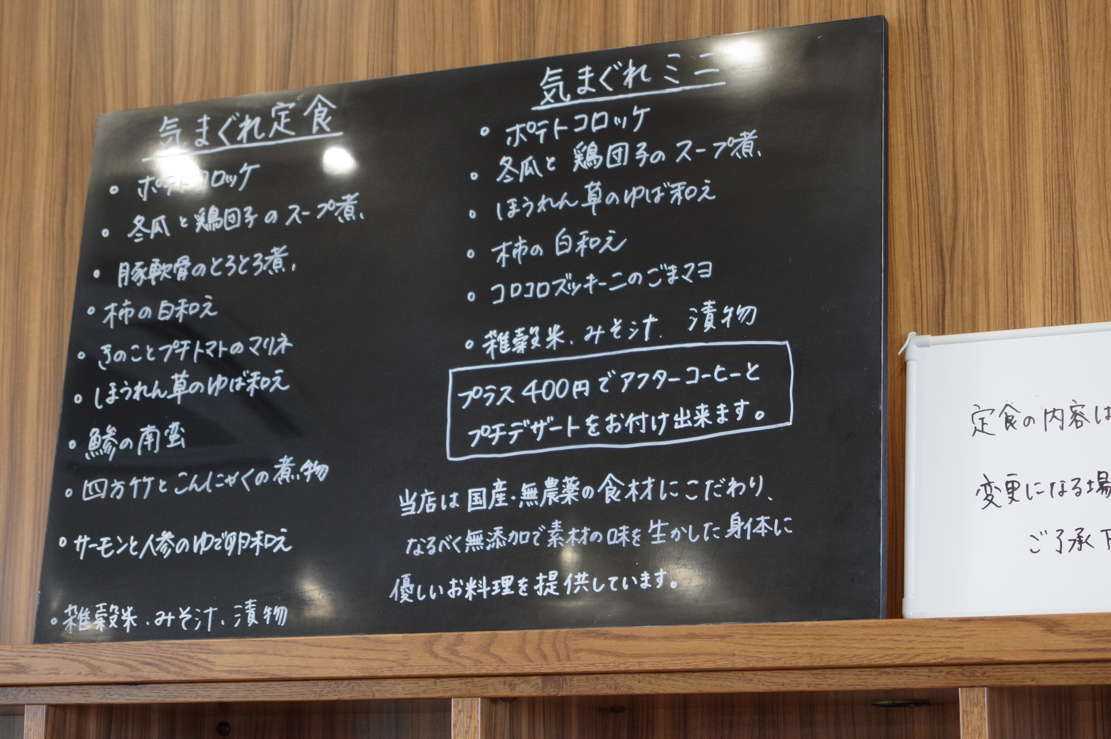 気まぐれ定食
• ポテトコロッケ
• 冬瓜と鶏団子のスープ煮、
• 豚軟骨のとろとろ煮、
• 柿の白和え
• きのことプチトマトのマリネ
• ほうれん草のゆば和え
• 鯵の南蛮
• 四方竹とこんにゃくの煮物
• サーモンと人参のゆで卵和え
• 雑穀米、みそ汁、漬物
気まぐれミニ
• ポテトコロッケ
• 冬瓜と鶏団子のスープ煮、
• ほうれん草のゆば和え
• 柿の白和え
• コロコロズッキーニのごまマヨ
• 雑穀米、みそ汁、漬物
プラス400円でアフターコーヒーと
プチデザートをお付け出来ます。
当店は国産・無農薬の食材にこだわり、
なるべく無添加で素材の味を生かした身体に
優しいお料理を提供しています。
定食の内容は
変更になる場
ご了承下